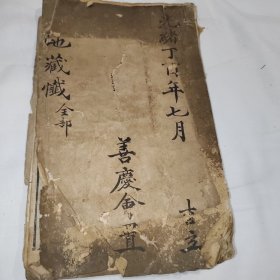 光緒丁酉年七月
吉立
善慶會置
地藏懺全部